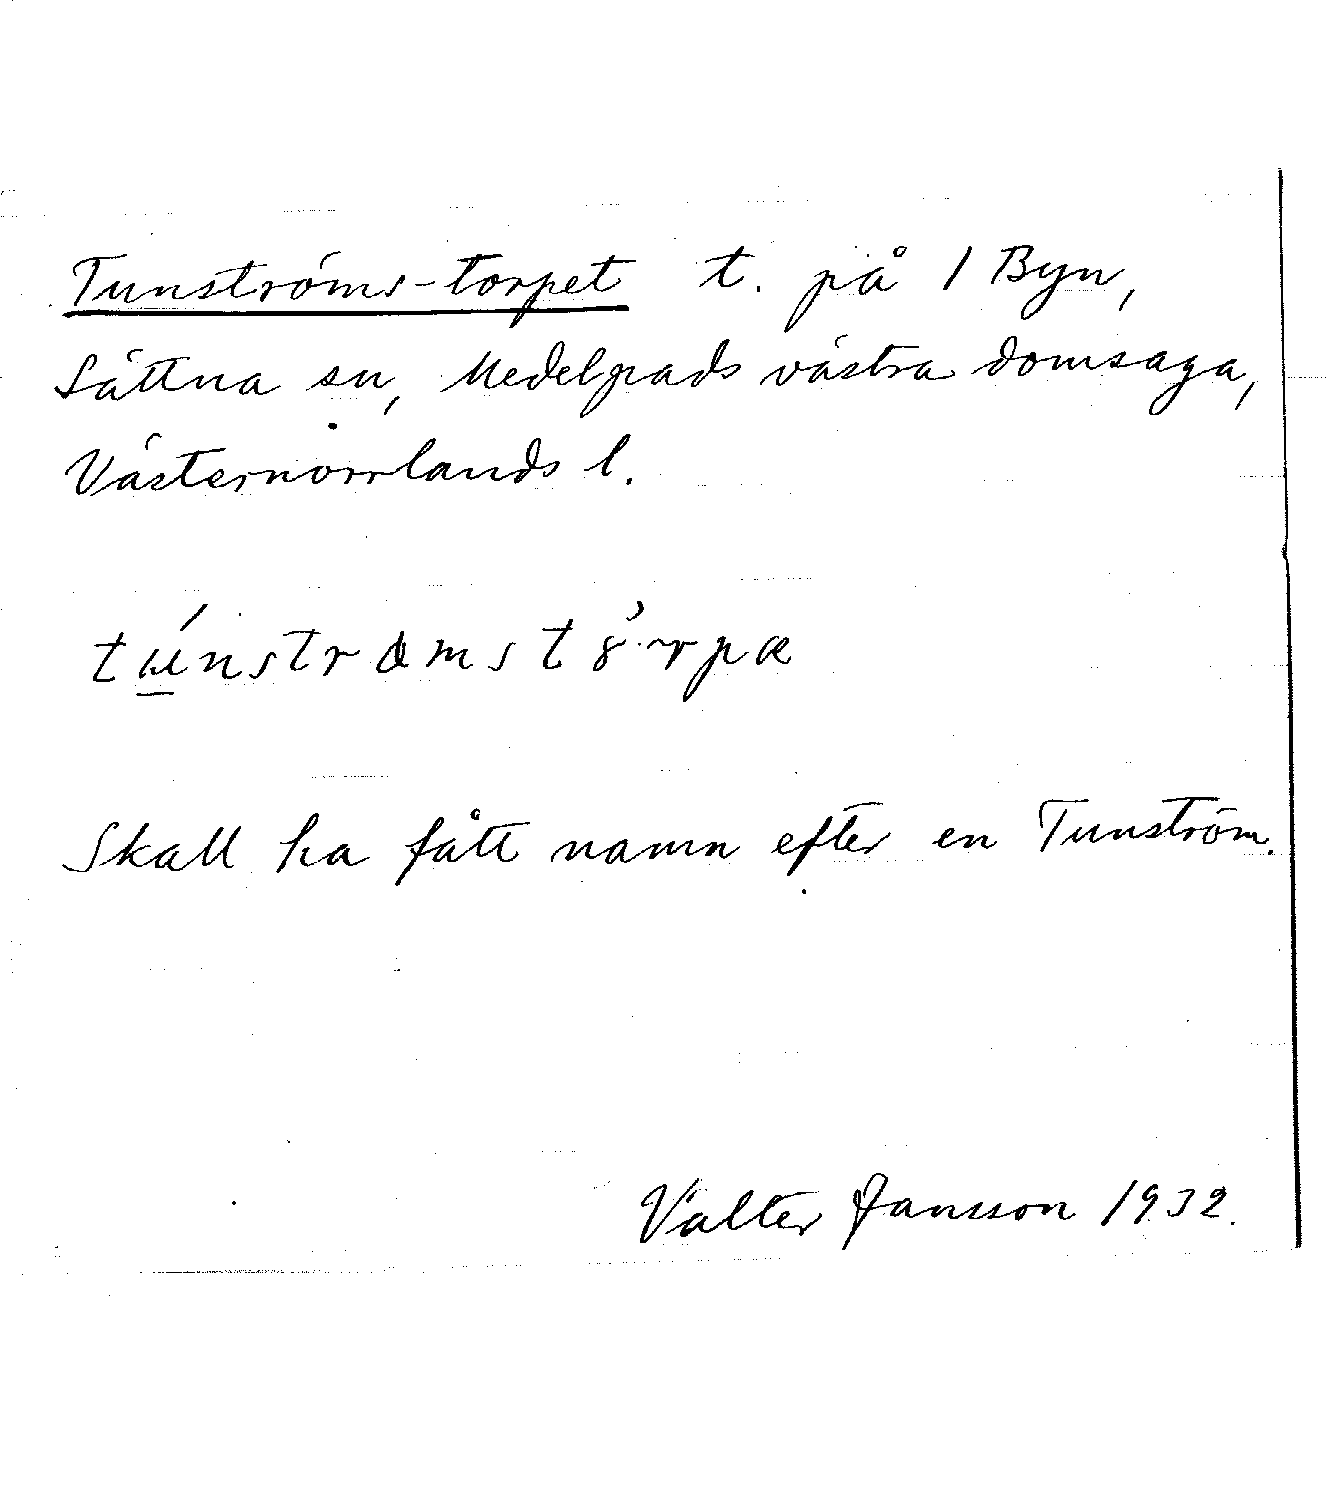 Tunströms-torpet t. på 1 Byn,
Sättna sn, Medelpads västra domsaga,
Västernorrlands l.
Skall ha fått namn efter en Tunström.
Valter Jansson 1932.